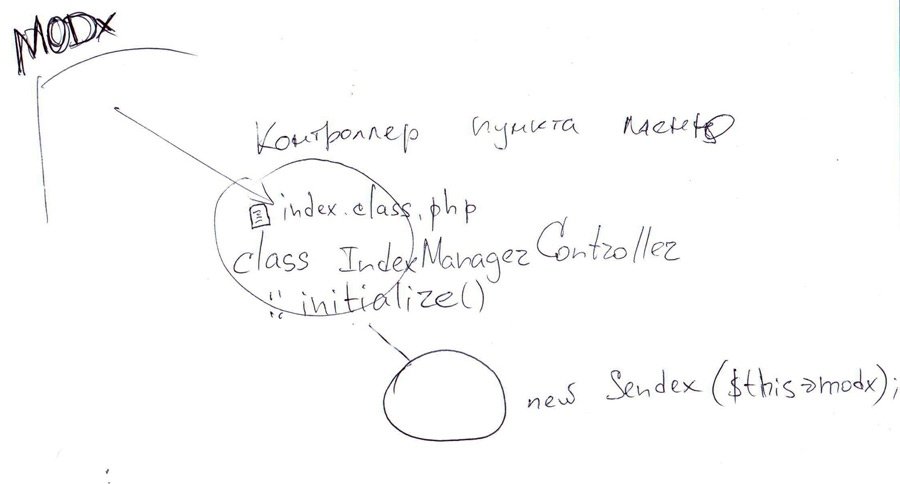 MODx
Контроллер пункта меню
index.class.php
class IndexManagerController
:: initialize()
new Sendex($this->modx);